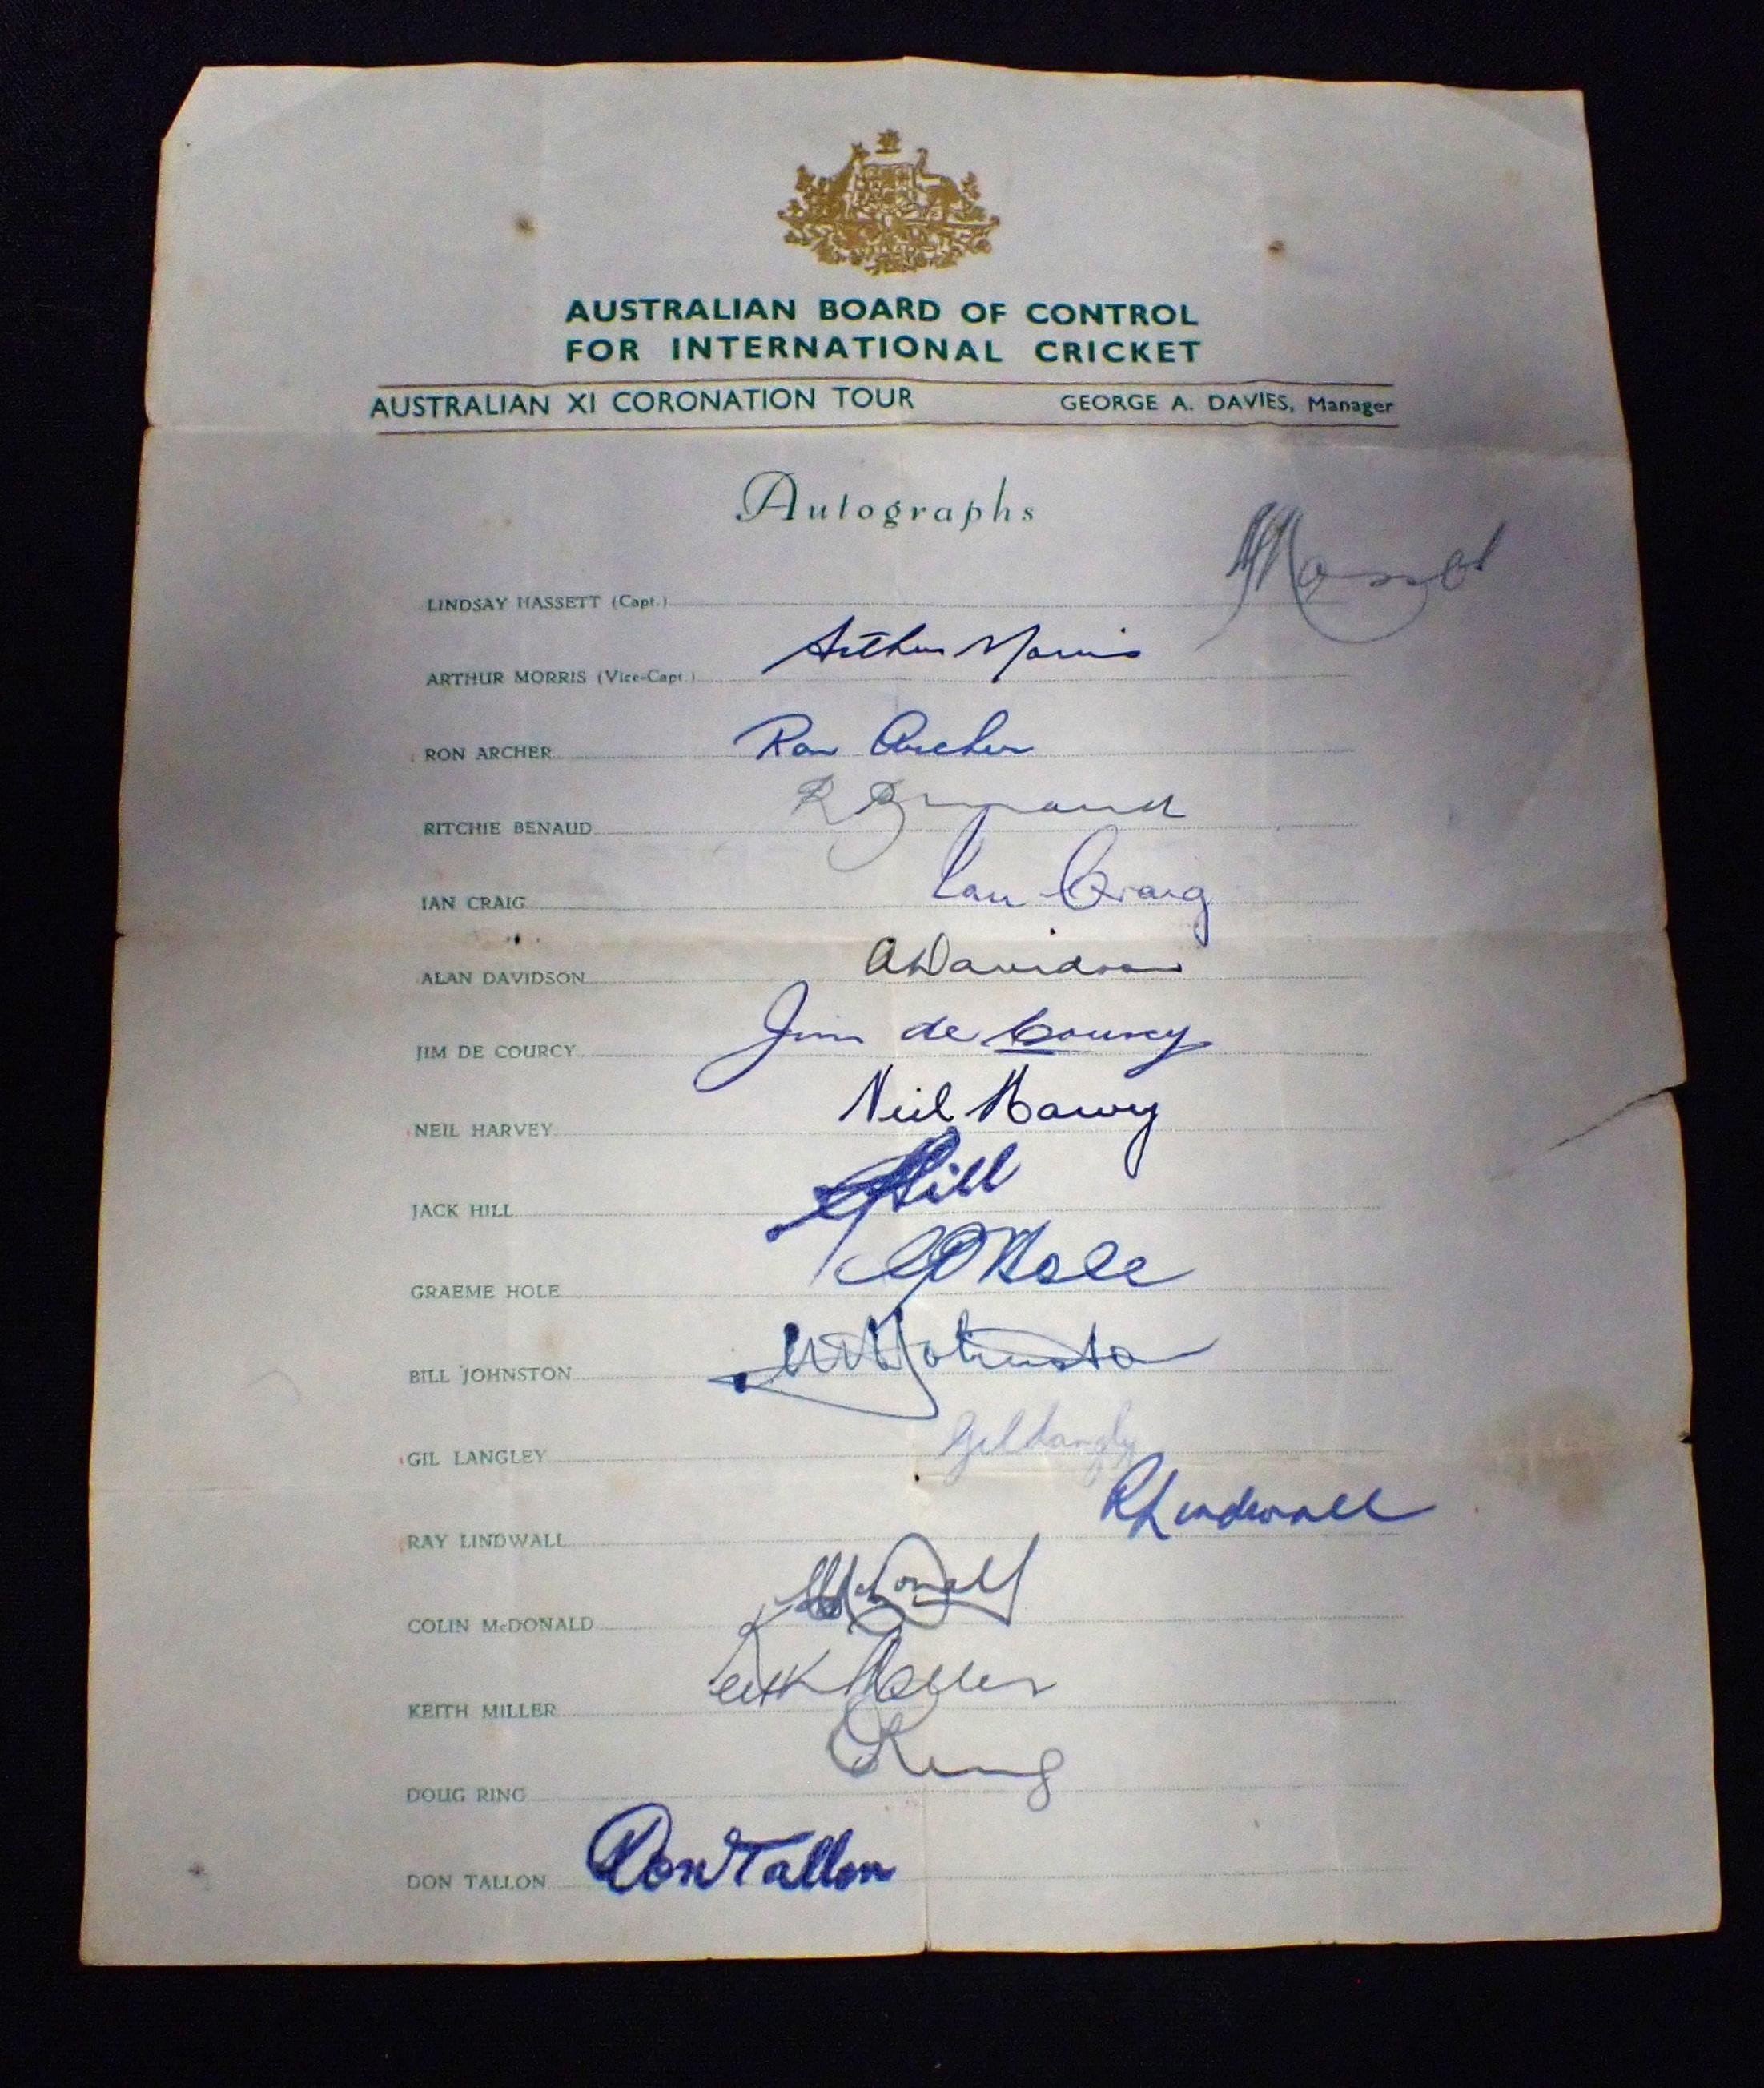 AUSTRALIAN BOARD OF CONTROL
FOR INTERNATIONAL CRICKET
AUSTRALIAN XI CORONATION TOUR GEORGE A. DAVIES, Manager
Autographs
LINDSAY HASSETT (Capt.) AHassett
ARTHUR MORRIS (Vice-Capt.) Arthur Morris
RON ARCHER Ron Archer
RITCHIE BENAUD R Benaud
IAN CRAIG Ian Craig
ALAN DAVIDSON AKDavidson
JIM DE COURCY Jim de Courcy
NEIL HARVEY Neil Harvey
JACK HILL JHill
GRAEME HOLE GBHole
BILL JOHNSTON WAJohnston
GIL LANGLEY Gil Langley
RAY LINDWALL RLindwall
COLIN McDONALD McDonald
KEITH MILLER Keith Miller
DOUG RING DRing
DON TALLON Don Tallon